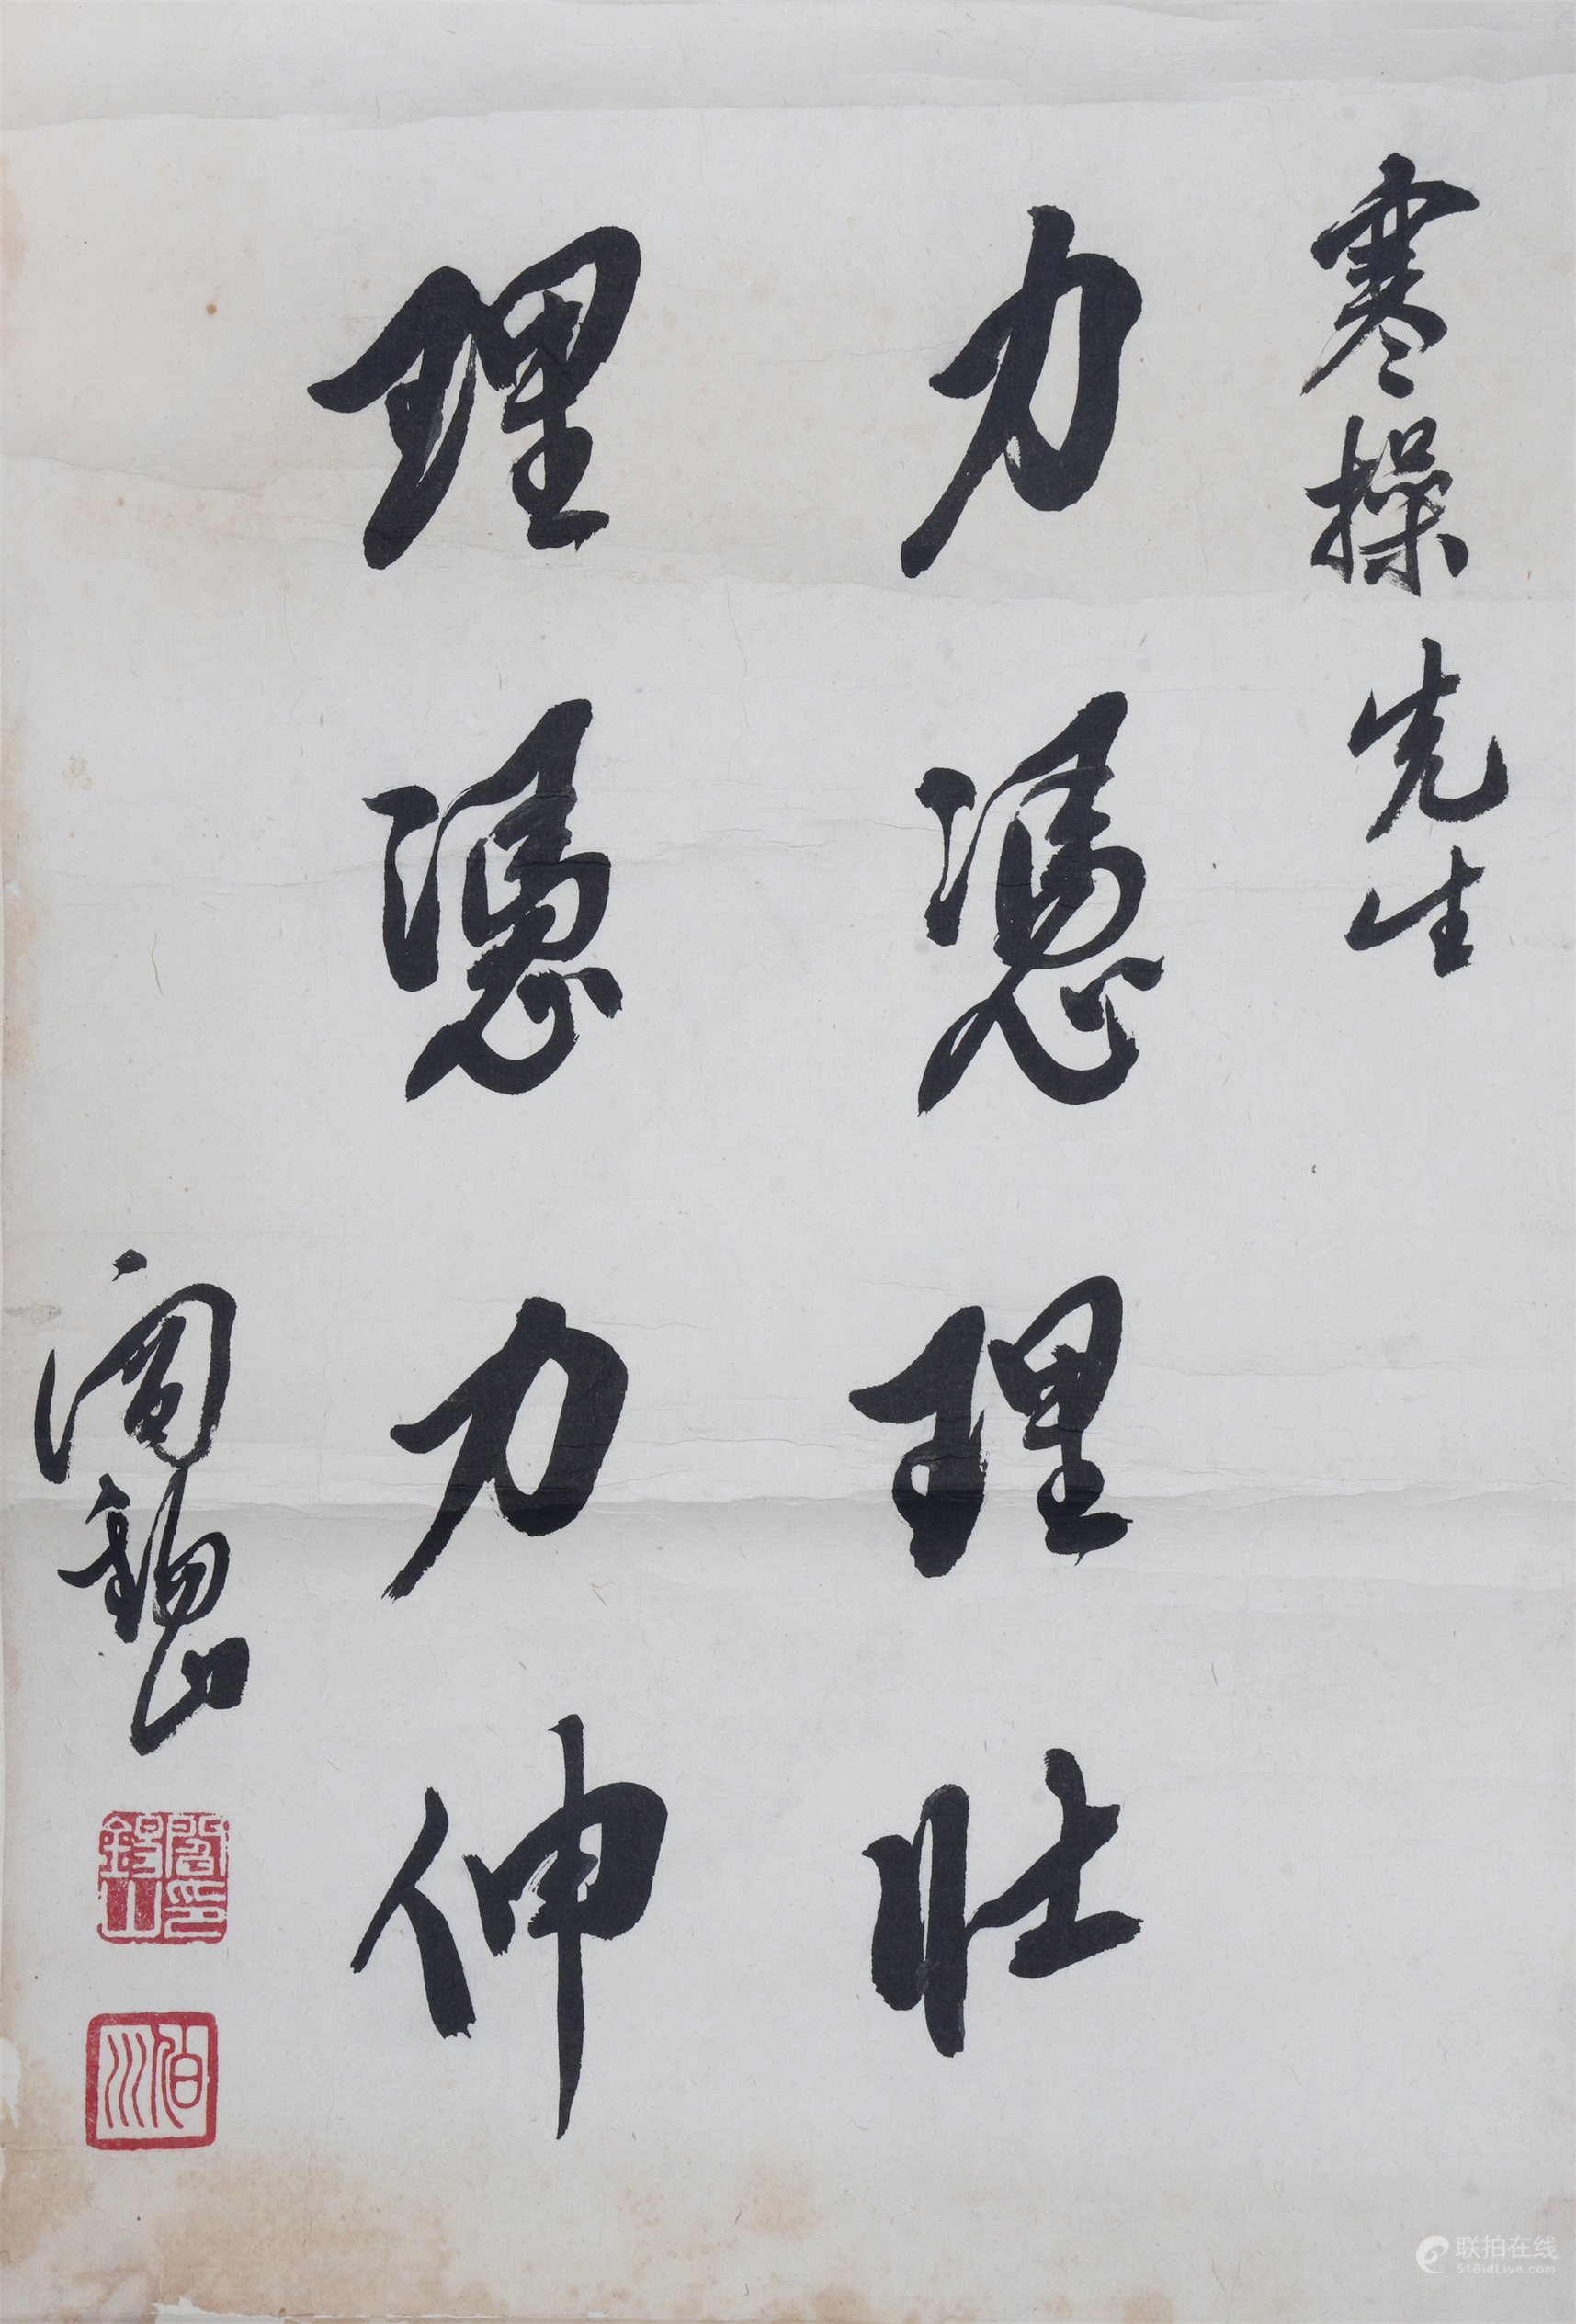 寒操先生
力憑理壯
理憑力伸
閻錫山
閻錫山印
伯川
联拍在线
51BidLive.com